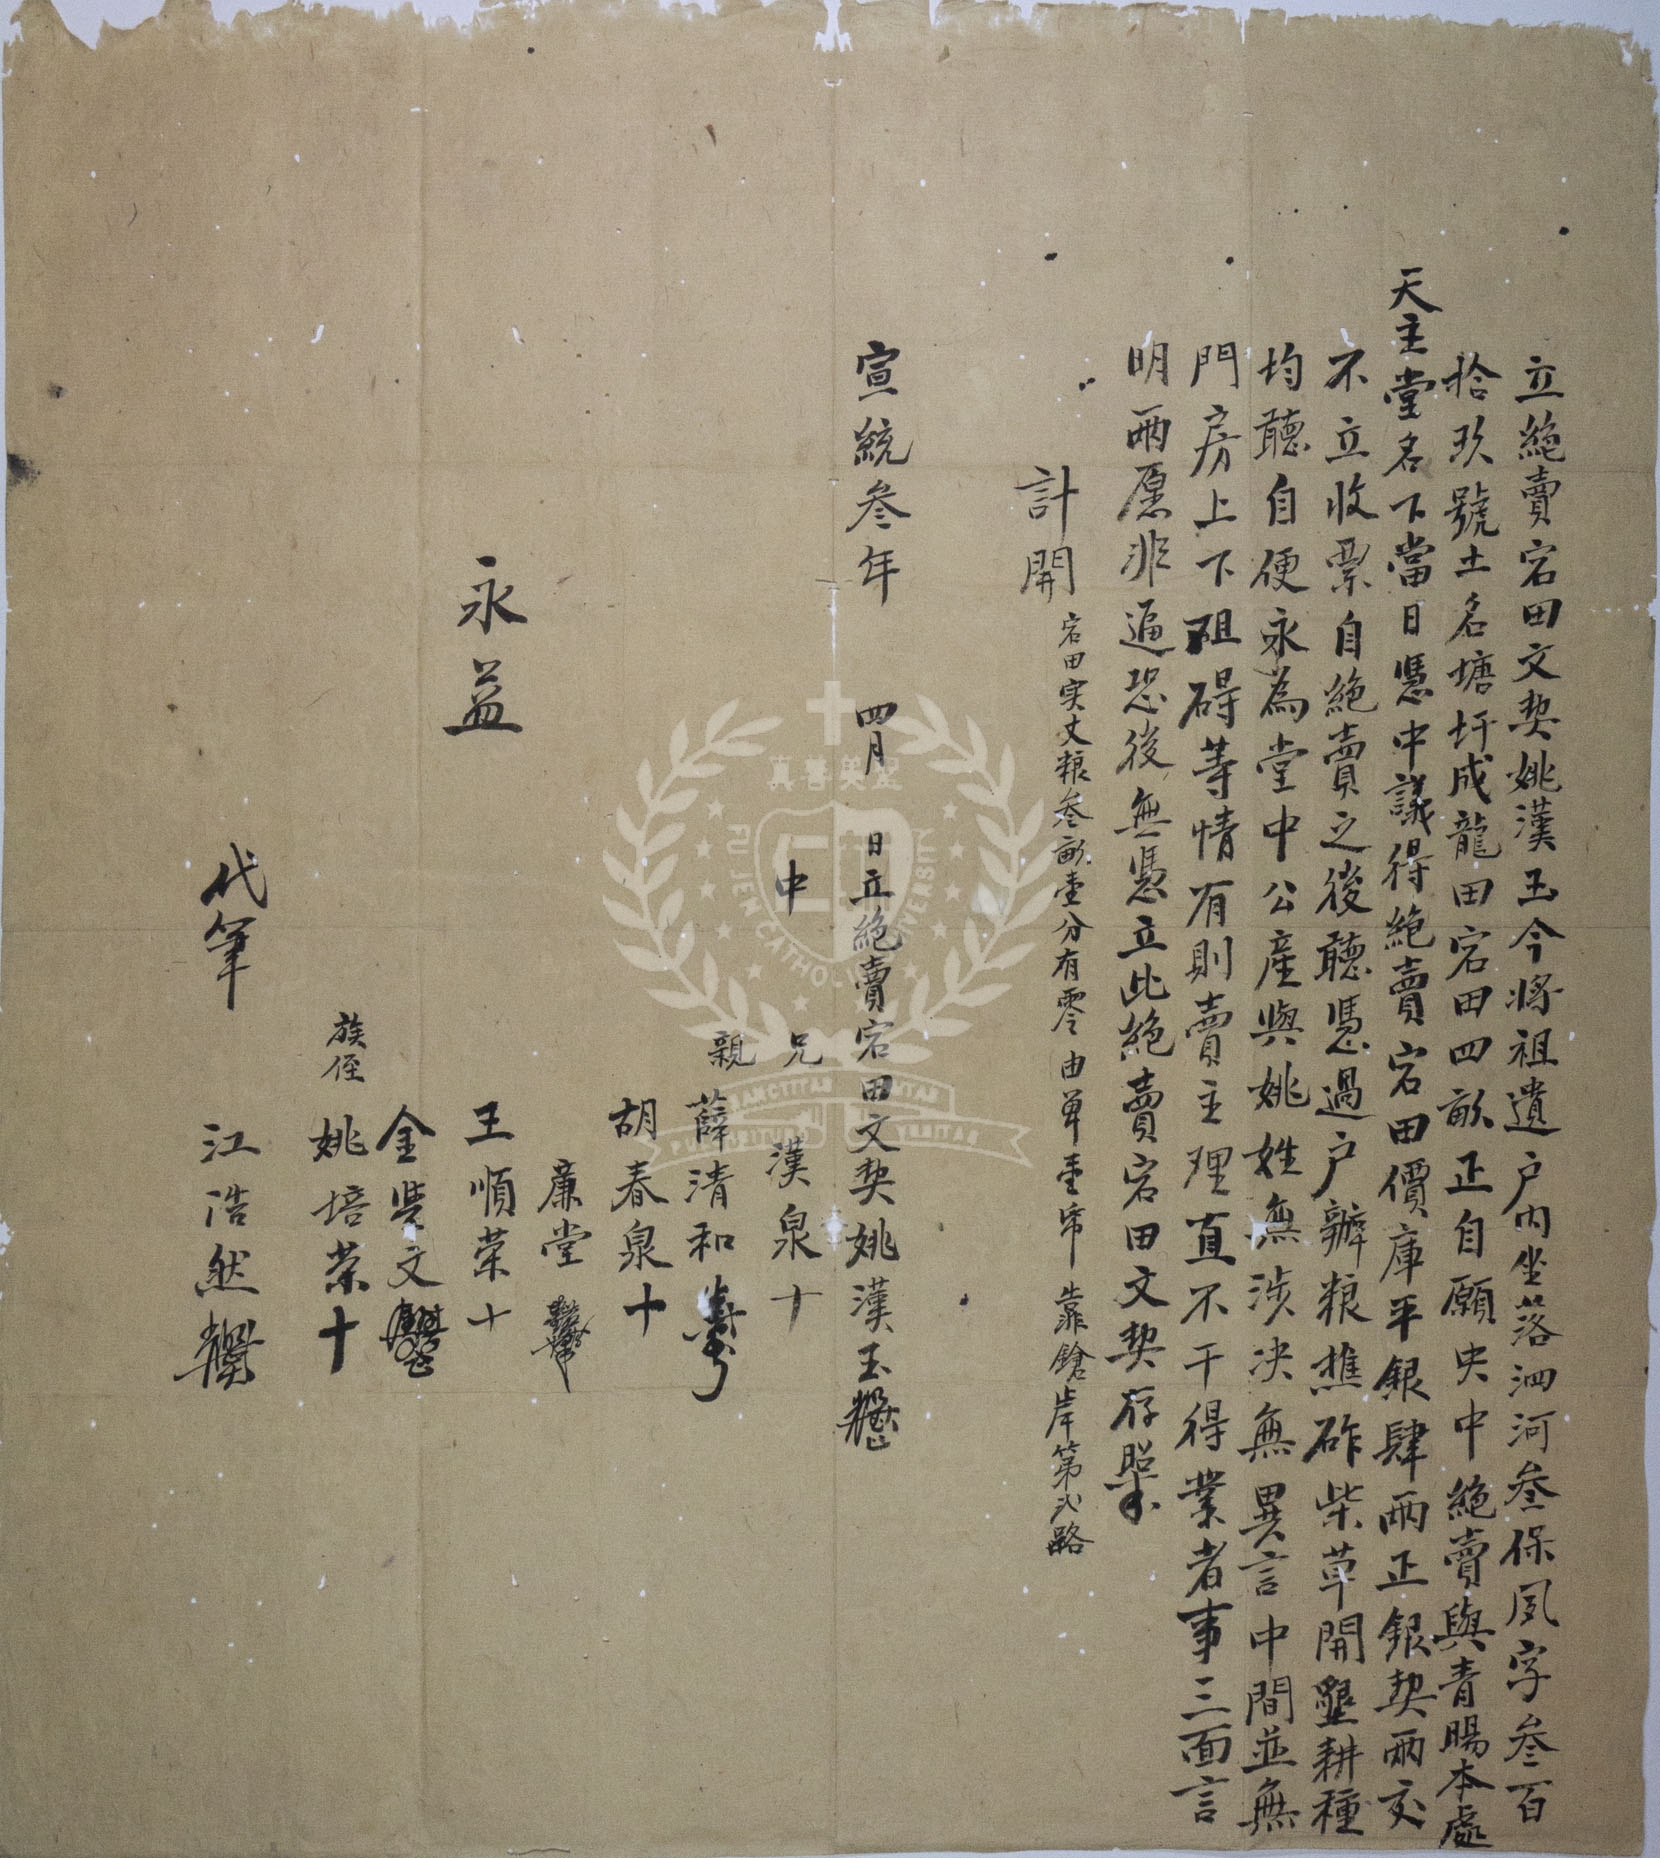 立絕賣宕田文契姚漢玉今將祖遺户内坐落泗河叁保夙字叁百
拾玖號土名塘圩成龍田宕田四畝正自願央中絕賣與青暘本處
天主堂名下當日憑中議得絕賣宕田價庫平銀肆兩正銀契兩交
不立收票自絕賣之後聽憑過户辦粮樵砟柴草開墾耕種
均聽自便永為堂中公產與姚姓無涉决無異言中間並無
門房上下阻碍等情有則賣主理直不干得業者事三面言
明兩愿非逼恐後無憑立此絕賣宕田文契存照
計開 宕田实丈粮叁畝壹分有零 由单壹帋 靠鎗岸第 路
宣統叁年 四月 日立絕賣宕田文契姚漢玉
中 兄 漢泉十
親 薛清和
胡春泉十
廉堂
王順荣十
永益
金 文
族侄 姚培荣十
代筆 江浩然
真善美聖
FU JEN CATHOLIC UNIVERSITY
SANCTITAS BONITAS
PULCHRITUDO VERITAS